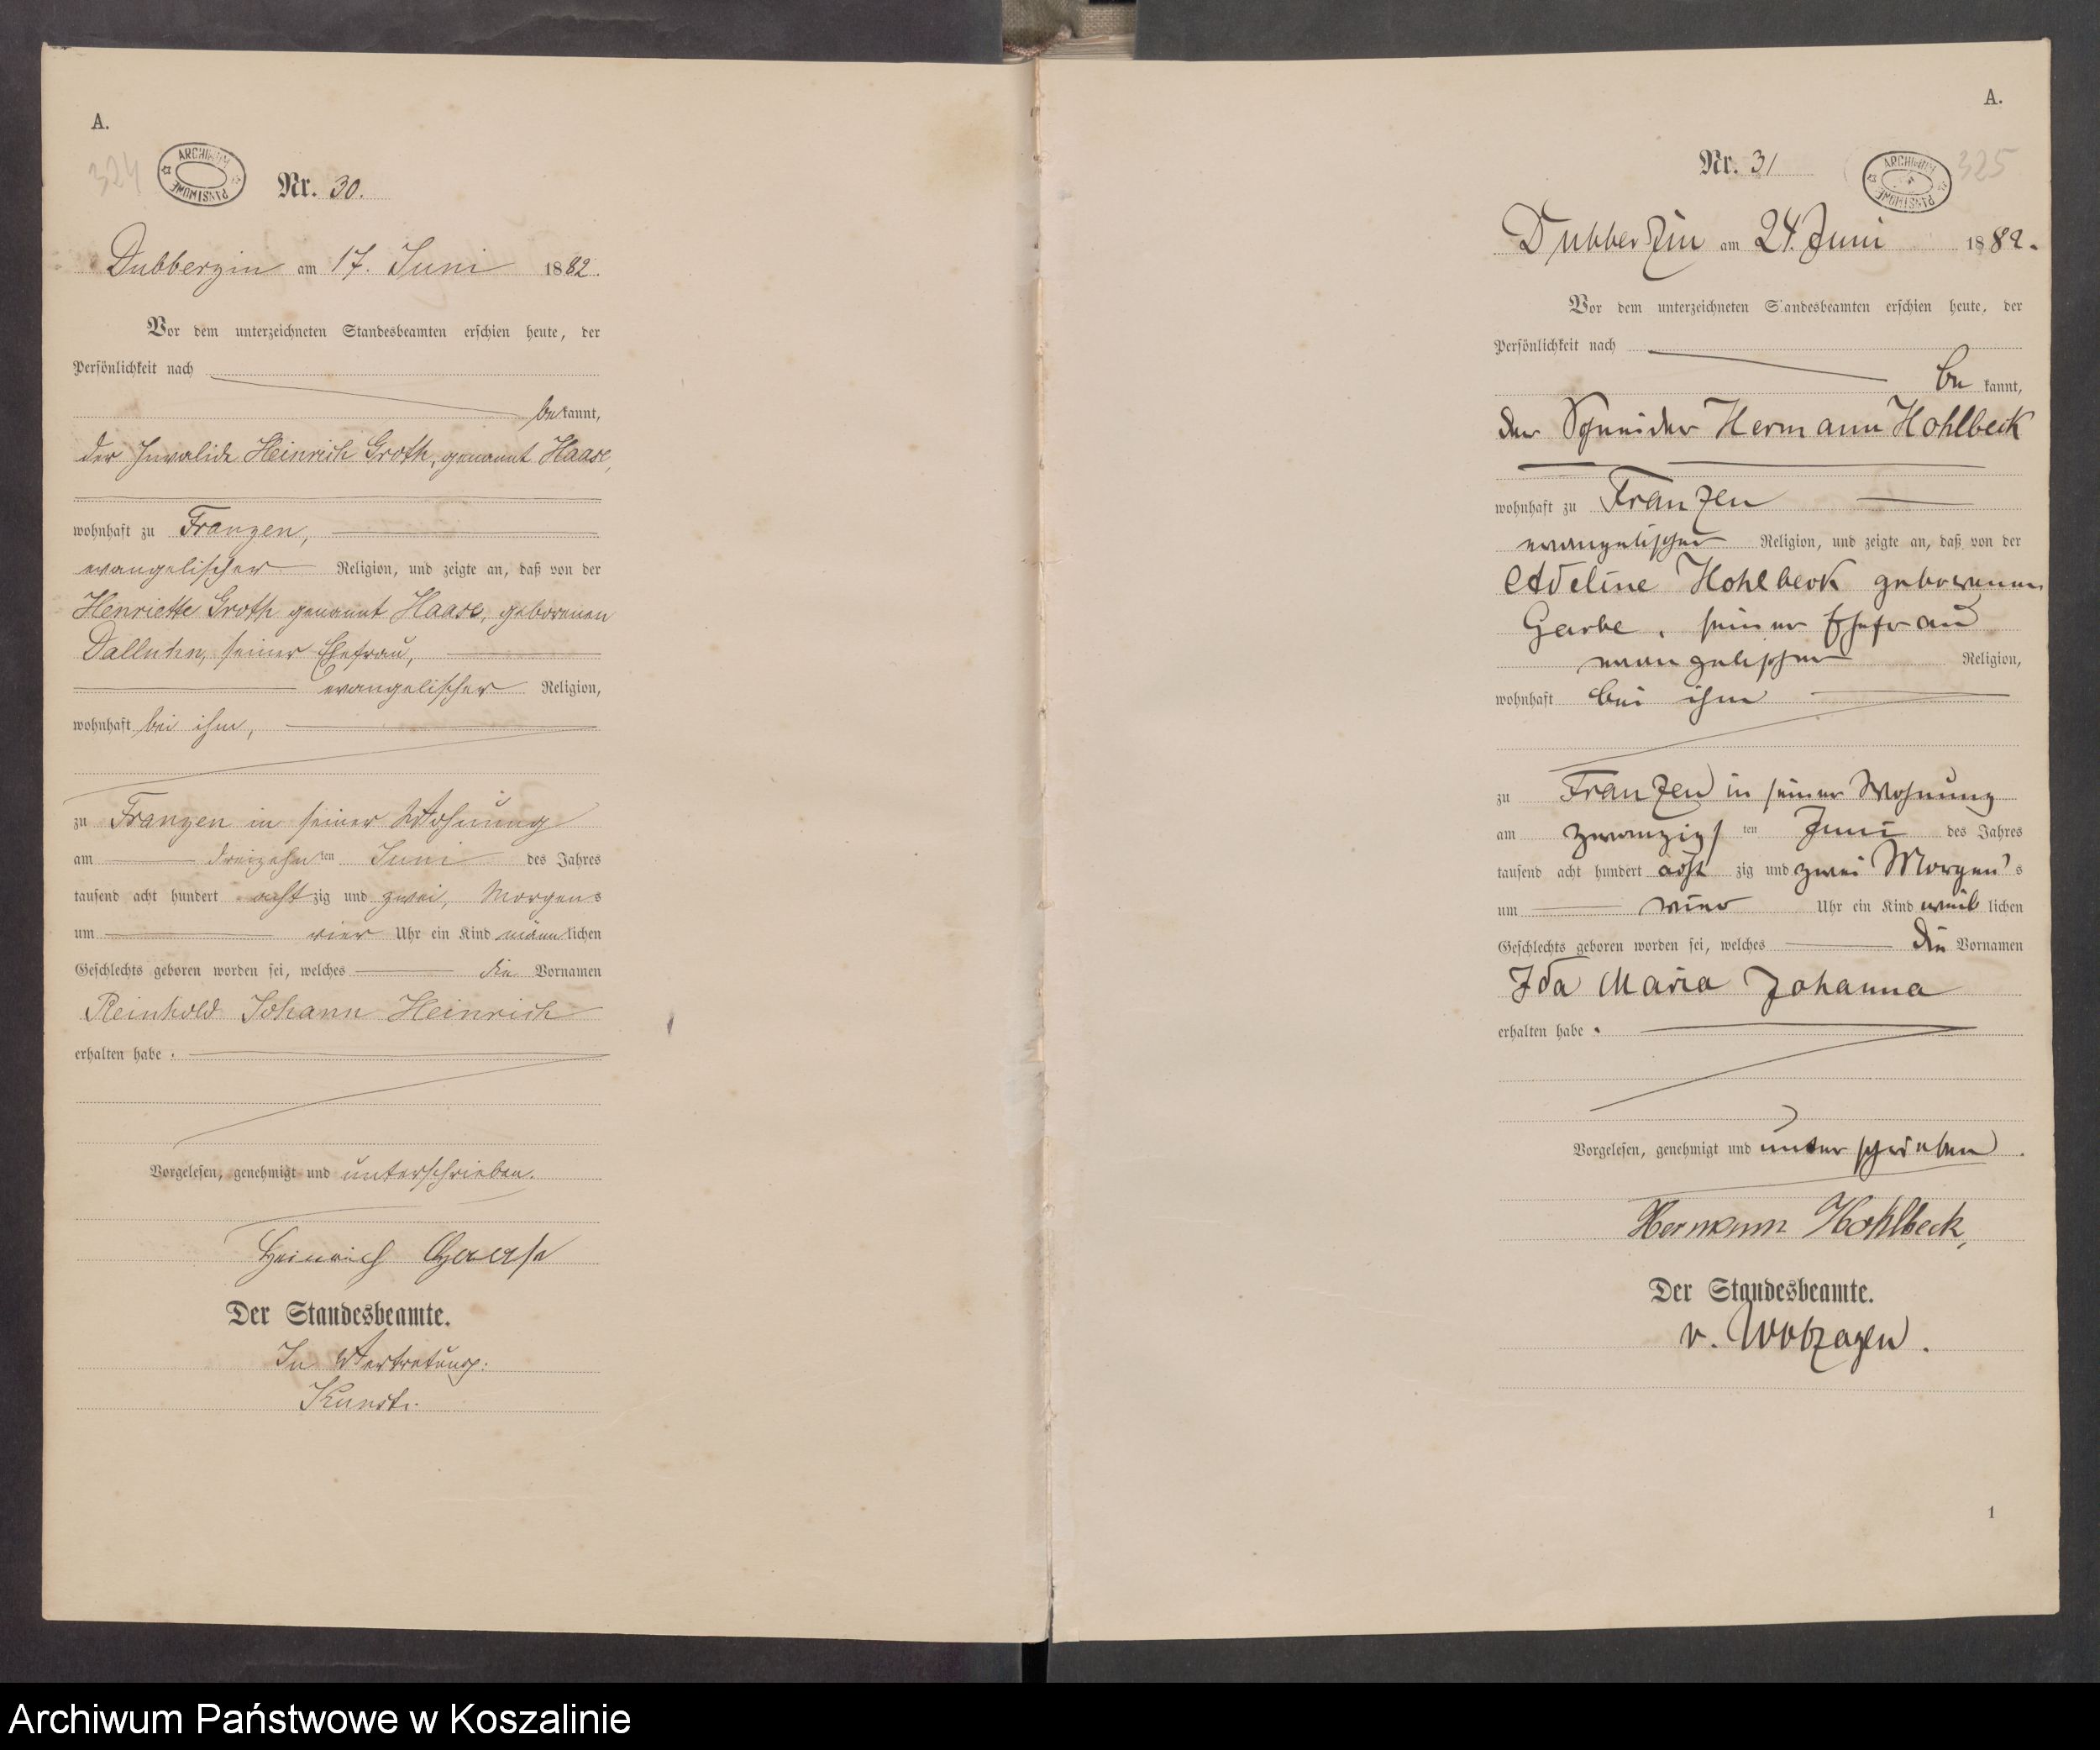 A.
324
ARCHIWUM PAŃSTWOWE
Nr. 30.
Dubberzin am 17. Juni 1882.
Vor dem unterzeichneten Standesbeamten erschien heute, der
Persönlichkeit nach
be kannt,
der Invalide Heinrich Groth, genannt Haase,
wohnhaft zu Franzen,
evangelischer Religion, und zeigte an, daß von der
Henriette Groth genannt Haase, geborenen
Dalluhn, seiner Ehefrau,
evangelischer Religion,
wohnhaft bei ihm,
zu Franzen in seiner Wohnung
am dreizehn ten Juni des Jahres
tausend acht hundert acht zig und zwei, Morgens
um vier Uhr ein Kind männlichen
Geschlechts geboren worden sei, welches die Vornamen
Reinhold Johann Heinrich
erhalten habe.
Vorgelesen, genehmigt und unterschrieben.
Heinrich Haase
Der Standesbeamte.
In Vertretung:
A.
Nr. 31
ARCHIWUM PAŃSTWOWE
325
Dubberzin am 24. Juni 1882.
Vor dem unterzeichneten Standesbeamten erschien heute, der
Persönlichkeit nach
be kannt,
der Schneider Hermann Hohlbeck
wohnhaft zu Franzen
evangelischer Religion, und zeigte an, daß von der
Adeline Hohlbeck geborenen
Garbe, seiner Ehefrau
evangelischer Religion,
wohnhaft bei ihm
zu Franzen in seiner Wohnung
am zwanzigs ten Juni des Jahres
tausend acht hundert acht zig und zwei Morgen's
um vier Uhr ein Kind weib lichen
Geschlechts geboren worden sei, welches die Vornamen
Ida Maria Johanna
erhalten habe.
Vorgelesen, genehmigt und unterschrieben.
Hermann Hohlbeck,
Der Standesbeamte.
1
Archiwum Państwowe w Koszalinie